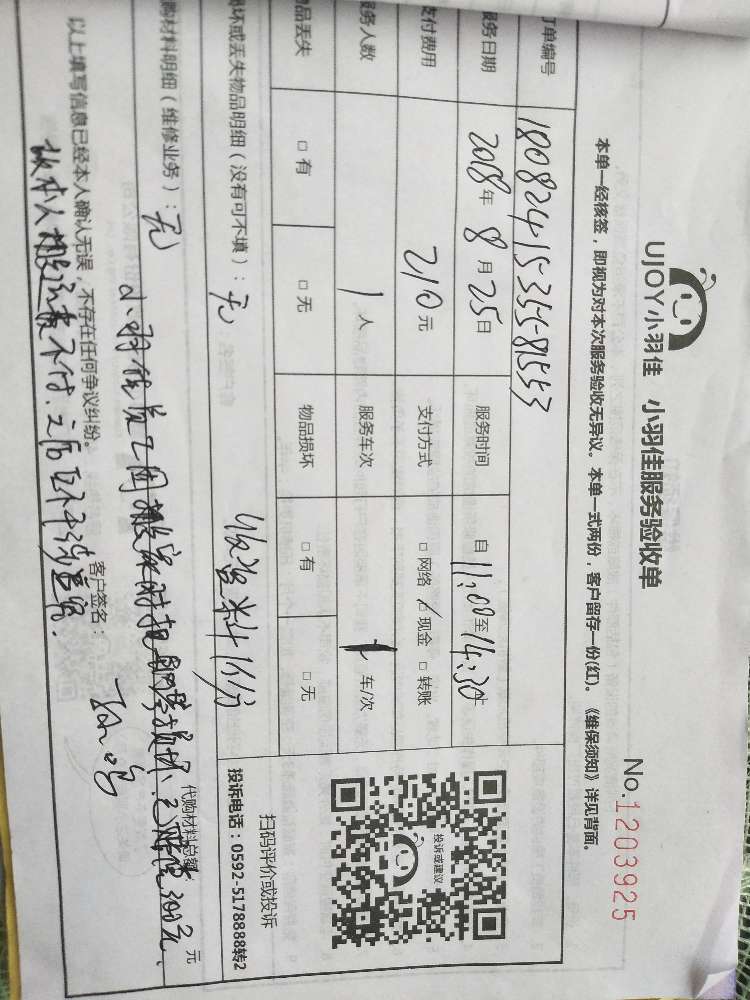 UJOY小羽佳 小羽佳服务验收单
No.1203925
本单一经核签，即视为对本次服务验收无异议。本单一式两份，客户留存一份(红)。《维保须知》详见背面。
订单编号 180824-15-355-81553
服务日期 2018年8月25日 服务时间 自11:00至14:30
支付费用 210元 支付方式 □网络 ☑现金 □转账
服务人数 1人 服务车次 1车/次
物品丢失 □有 □无 物品损坏 □有 □无
投诉或建议
扫码评价或投诉
投诉电话：0592-5178888转2
损坏或丢失物品明细（没有可不填）：无
收资料1份
购材料明细（维修业务）：无
代购材料总额： 元
小羽佳员工因搬家时把 损坏，已赔偿300元、
以上填写信息已经本人确认无误，不存在任何争议纠纷。
客户签名：
故本人搬运费不付.之后 不干涉